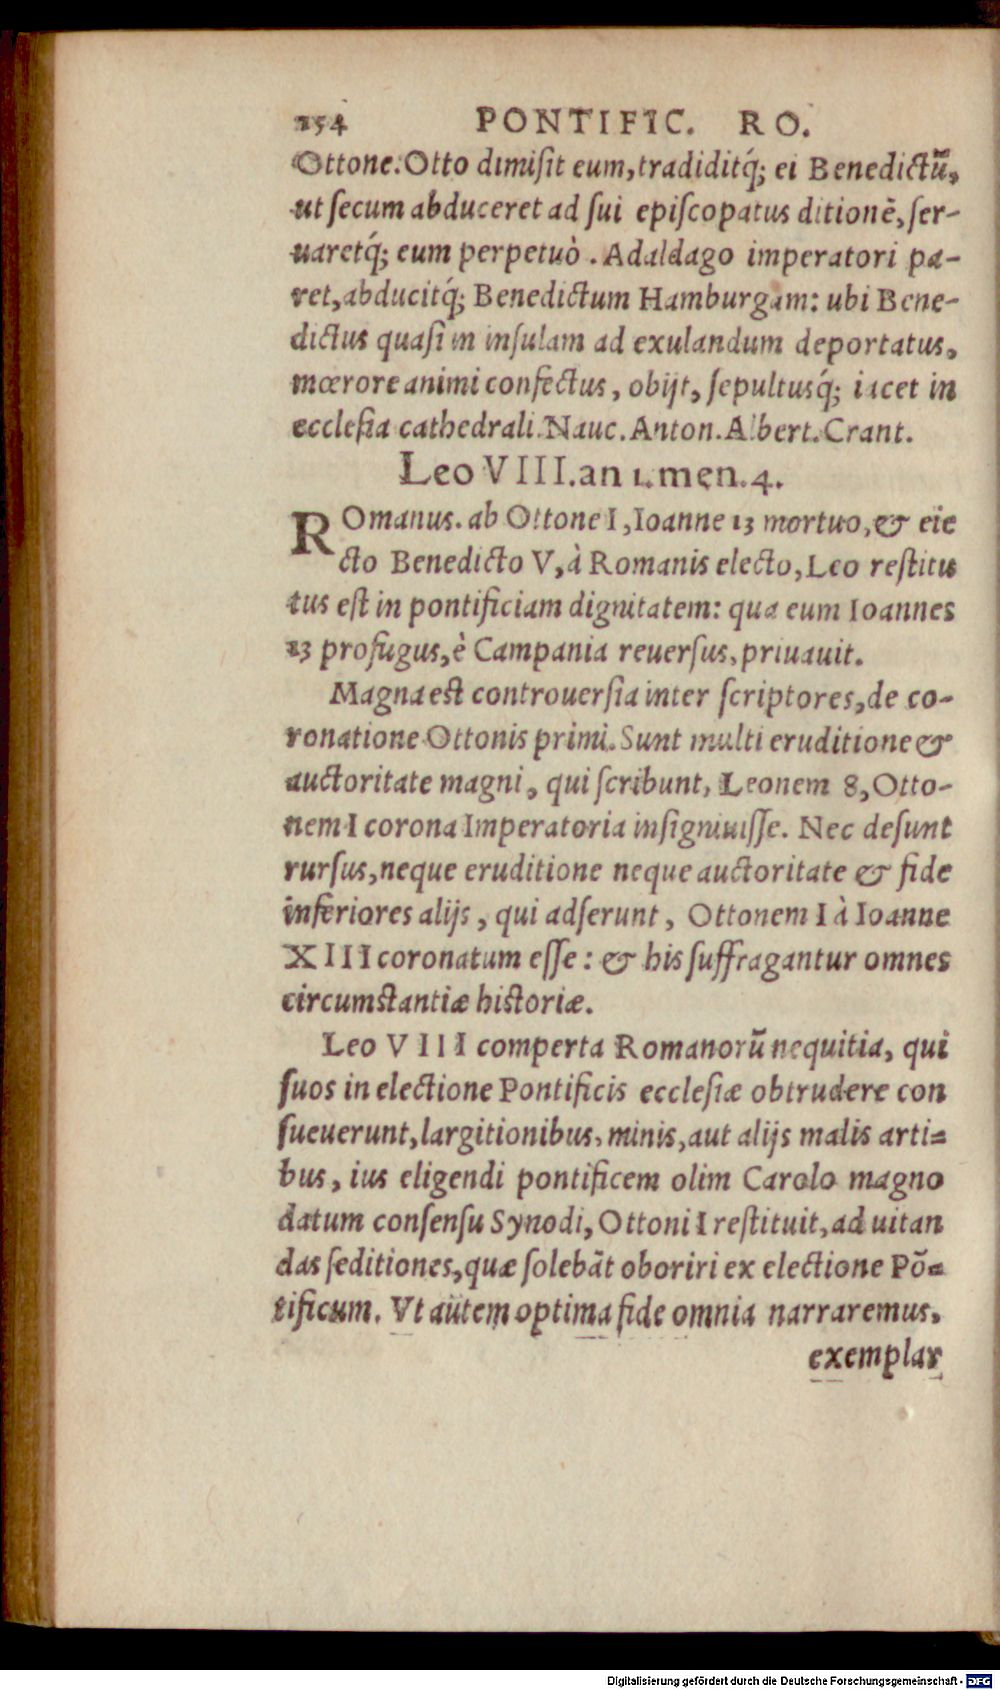 254 PONTIFIC. RO.
Ottone. Otto dimiſit eum, tradiditq́; ei Benedictū,
ut ſecum abduceret ad ſui epiſcopatus ditionē, ſer-
uaretq́; eum perpetuò. Adaldago imperatori pa-
ret, abducitq́; Benedictum Hamburgam: ubi Bene-
dictus quaſi in inſulam ad exulandum deportatus,
mœrore animi confectus, obijt, ſepultusq́; iacet in
eccleſia cathedrali. Nauc. Anton. Albert. Crant.
Leo VIII. an 1. men. 4.
ROmanus. ab Ottone I, Ioanne 13 mortuo, & eie
cto Benedicto V, à Romanis electo, Leo reſtitu
tus eſt in pontificiam dignitatem: qua eum Ioannes
13 profugus, è Campania reuerſus, priuauit.
Magna eſt controuerſia inter ſcriptores, de co-
ronatione Ottonis primi. Sunt multi eruditione &
auctoritate magni, qui ſcribunt, Leonem 8, Otto-
nem I corona Imperatoria inſigniuiſſe. Nec deſunt
rurſus, neque eruditione neque auctoritate & fide
inferiores alijs, qui adſerunt, Ottonem I à Ioanne
XIII coronatum eſſe: & his ſuffragantur omnes
circumſtantiæ hiſtoriæ.
Leo VIII comperta Romanorū nequitia, qui
ſuos in electione Pontificis eccleſiæ obtrudere con
ſueuerunt, largitionibus, minis, aut alijs malis arti=
bus, ius eligendi pontificem olim Carolo magno
datum conſenſu Synodi, Ottoni I reſtituit, ad uitan
das ſeditiones, quæ ſolebāt oboriri ex electione Põ=
tificum. Vt autem optima fide omnia narraremus,
exemplar
Digitalisierung gefördert durch die Deutsche Forschungsgemeinschaft - DFG